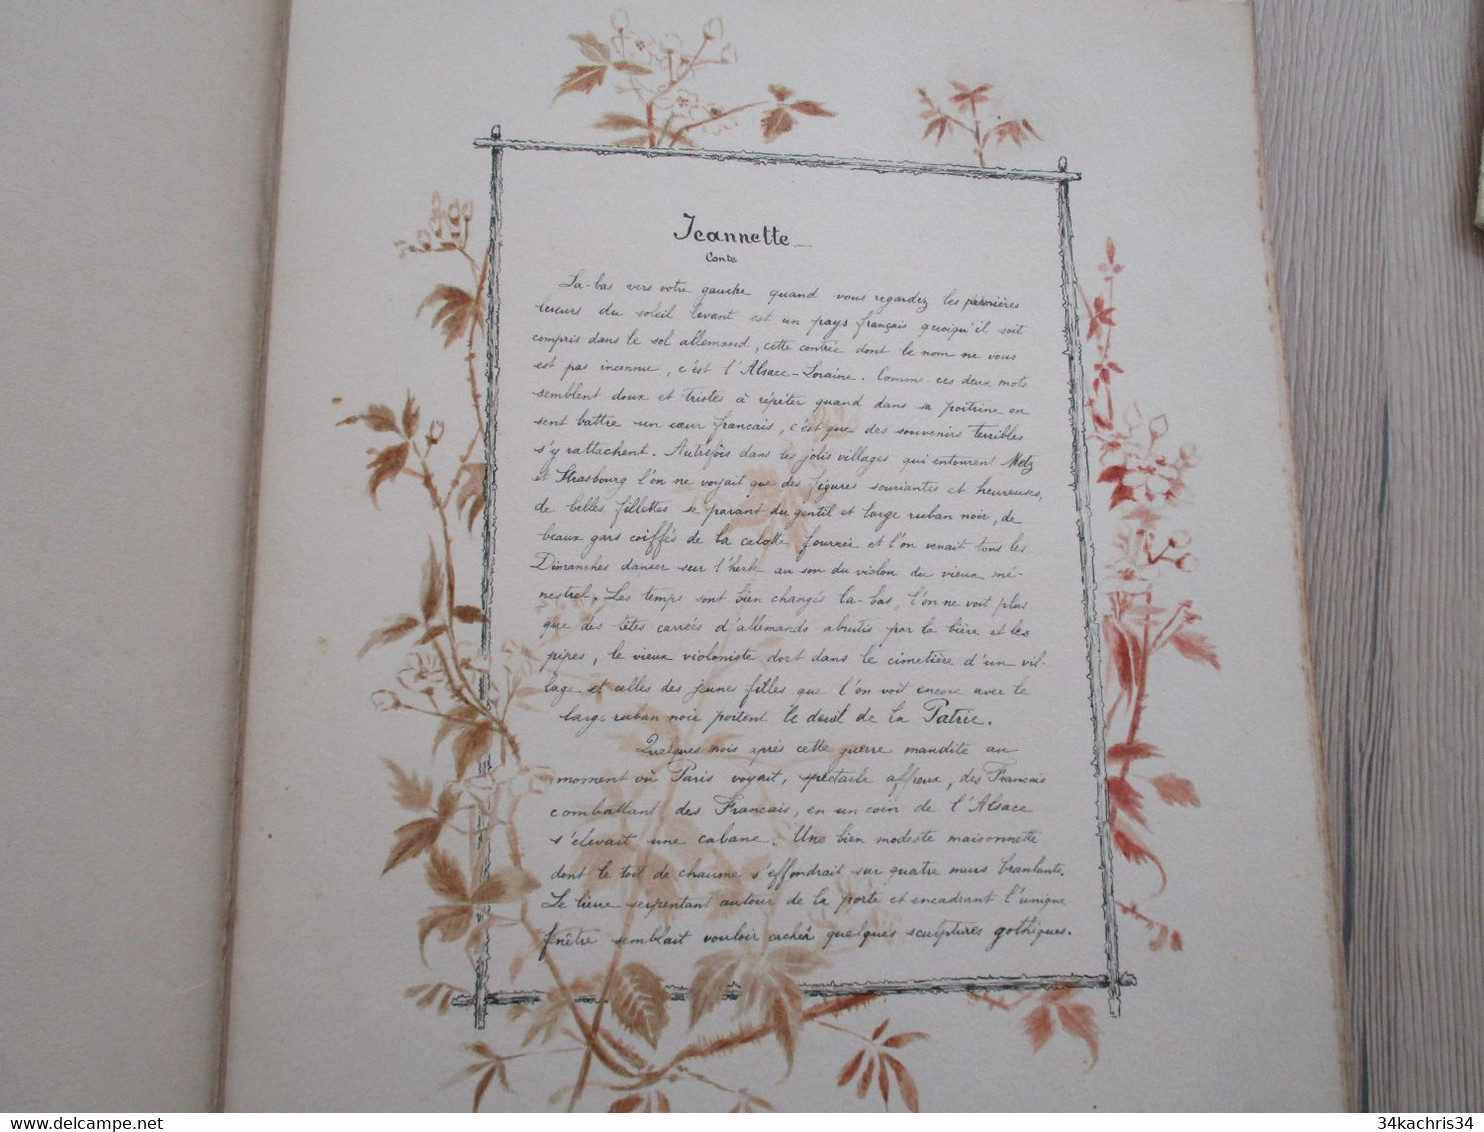 Jeannette
Conte
La-bas vers votre gauche quand vous regardez les premières
lueurs du soleil levant est un pays français quoiqu'il soit
compris dans le sol allemand, cette contrée dont le nom ne vous
est pas inconnue, c'est l'Alsace-Loraine. Comme ces deux mots
semblent doux et tristes à répéter quand dans sa poitrine on
sent battre un cœur francais, c'est que des souvenirs terribles
s'y rattachent. Autrefois dans les jolis villages qui entourent Metz
et Strasbourg l'on ne voyait que des figures souriantes et heureuses,
de belles fillettes se parant du gentil et large ruban noir, de
beaux gars coiffés de la calotte fourrée et l'on venait tous les
Dimanches danser sur l'herbe au son du violon du vieux mé-
nestrel. Les temps sont bien changés la-bas, l'on ne voit plus
que des têtes carrées d'allemands abrutis par la bière et les
pipes, le vieux violoniste dort dans le cimetière d'un vil-
lage et celles des jeunes filles que l'on voit encore avec le
large ruban noir portent le deuil de la Patrie.
Quelques mois après cette guerre mandite au
moment où Paris voyait, spectacle affreux, des Francais
combattant des Francais, en un coin de l'Alsace
s'élevait une cabane. Une bien modeste maisonnette
dont le toit de chaume s'effondrait sur quatre murs branlants.
Le lierre serpentant autour de la porte et encadrant l'unique
fenêtre semblait vouloir cacher quelques sculptures gothiques.
34kachris34